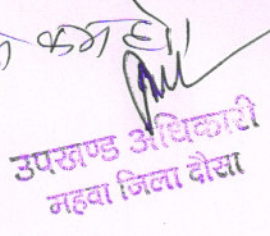 कम है।
उपखण्ड अधिकारी
महवा जिला दौसा